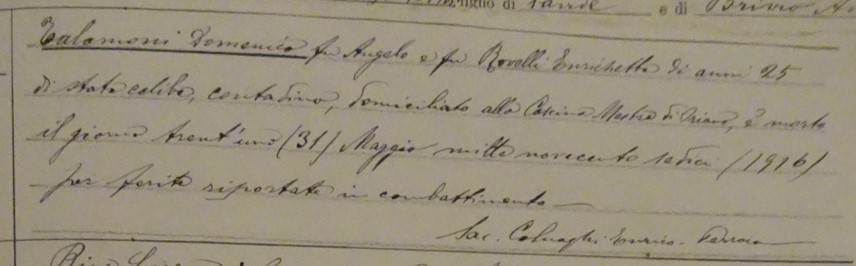 figlio di Davide e di Brivio
Talamoni Domenico fu Angelo e fu Rovelli Enrichetta di anni 25
di stato celibe, contadino, domiciliato alla Cascina Mastra di Oriano, è morto
il giorno trent'uno (31) Maggio mille novecento sedici (1916)
per ferite riportate in combattimento
Sac. Colnaghi Enrico - Parroco